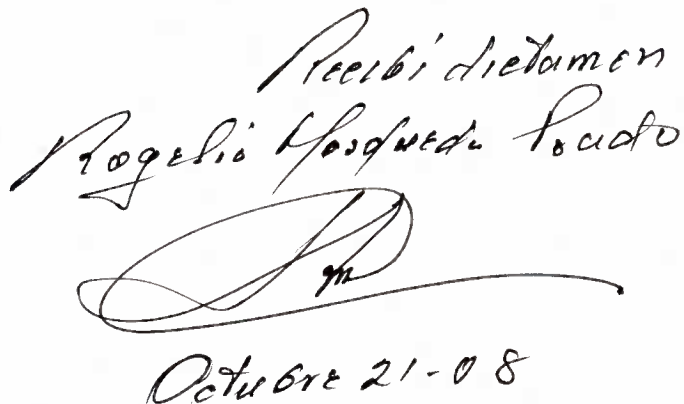 Recibí dictamen
Rogelio Mosqueda Prado
Octubre 21-08